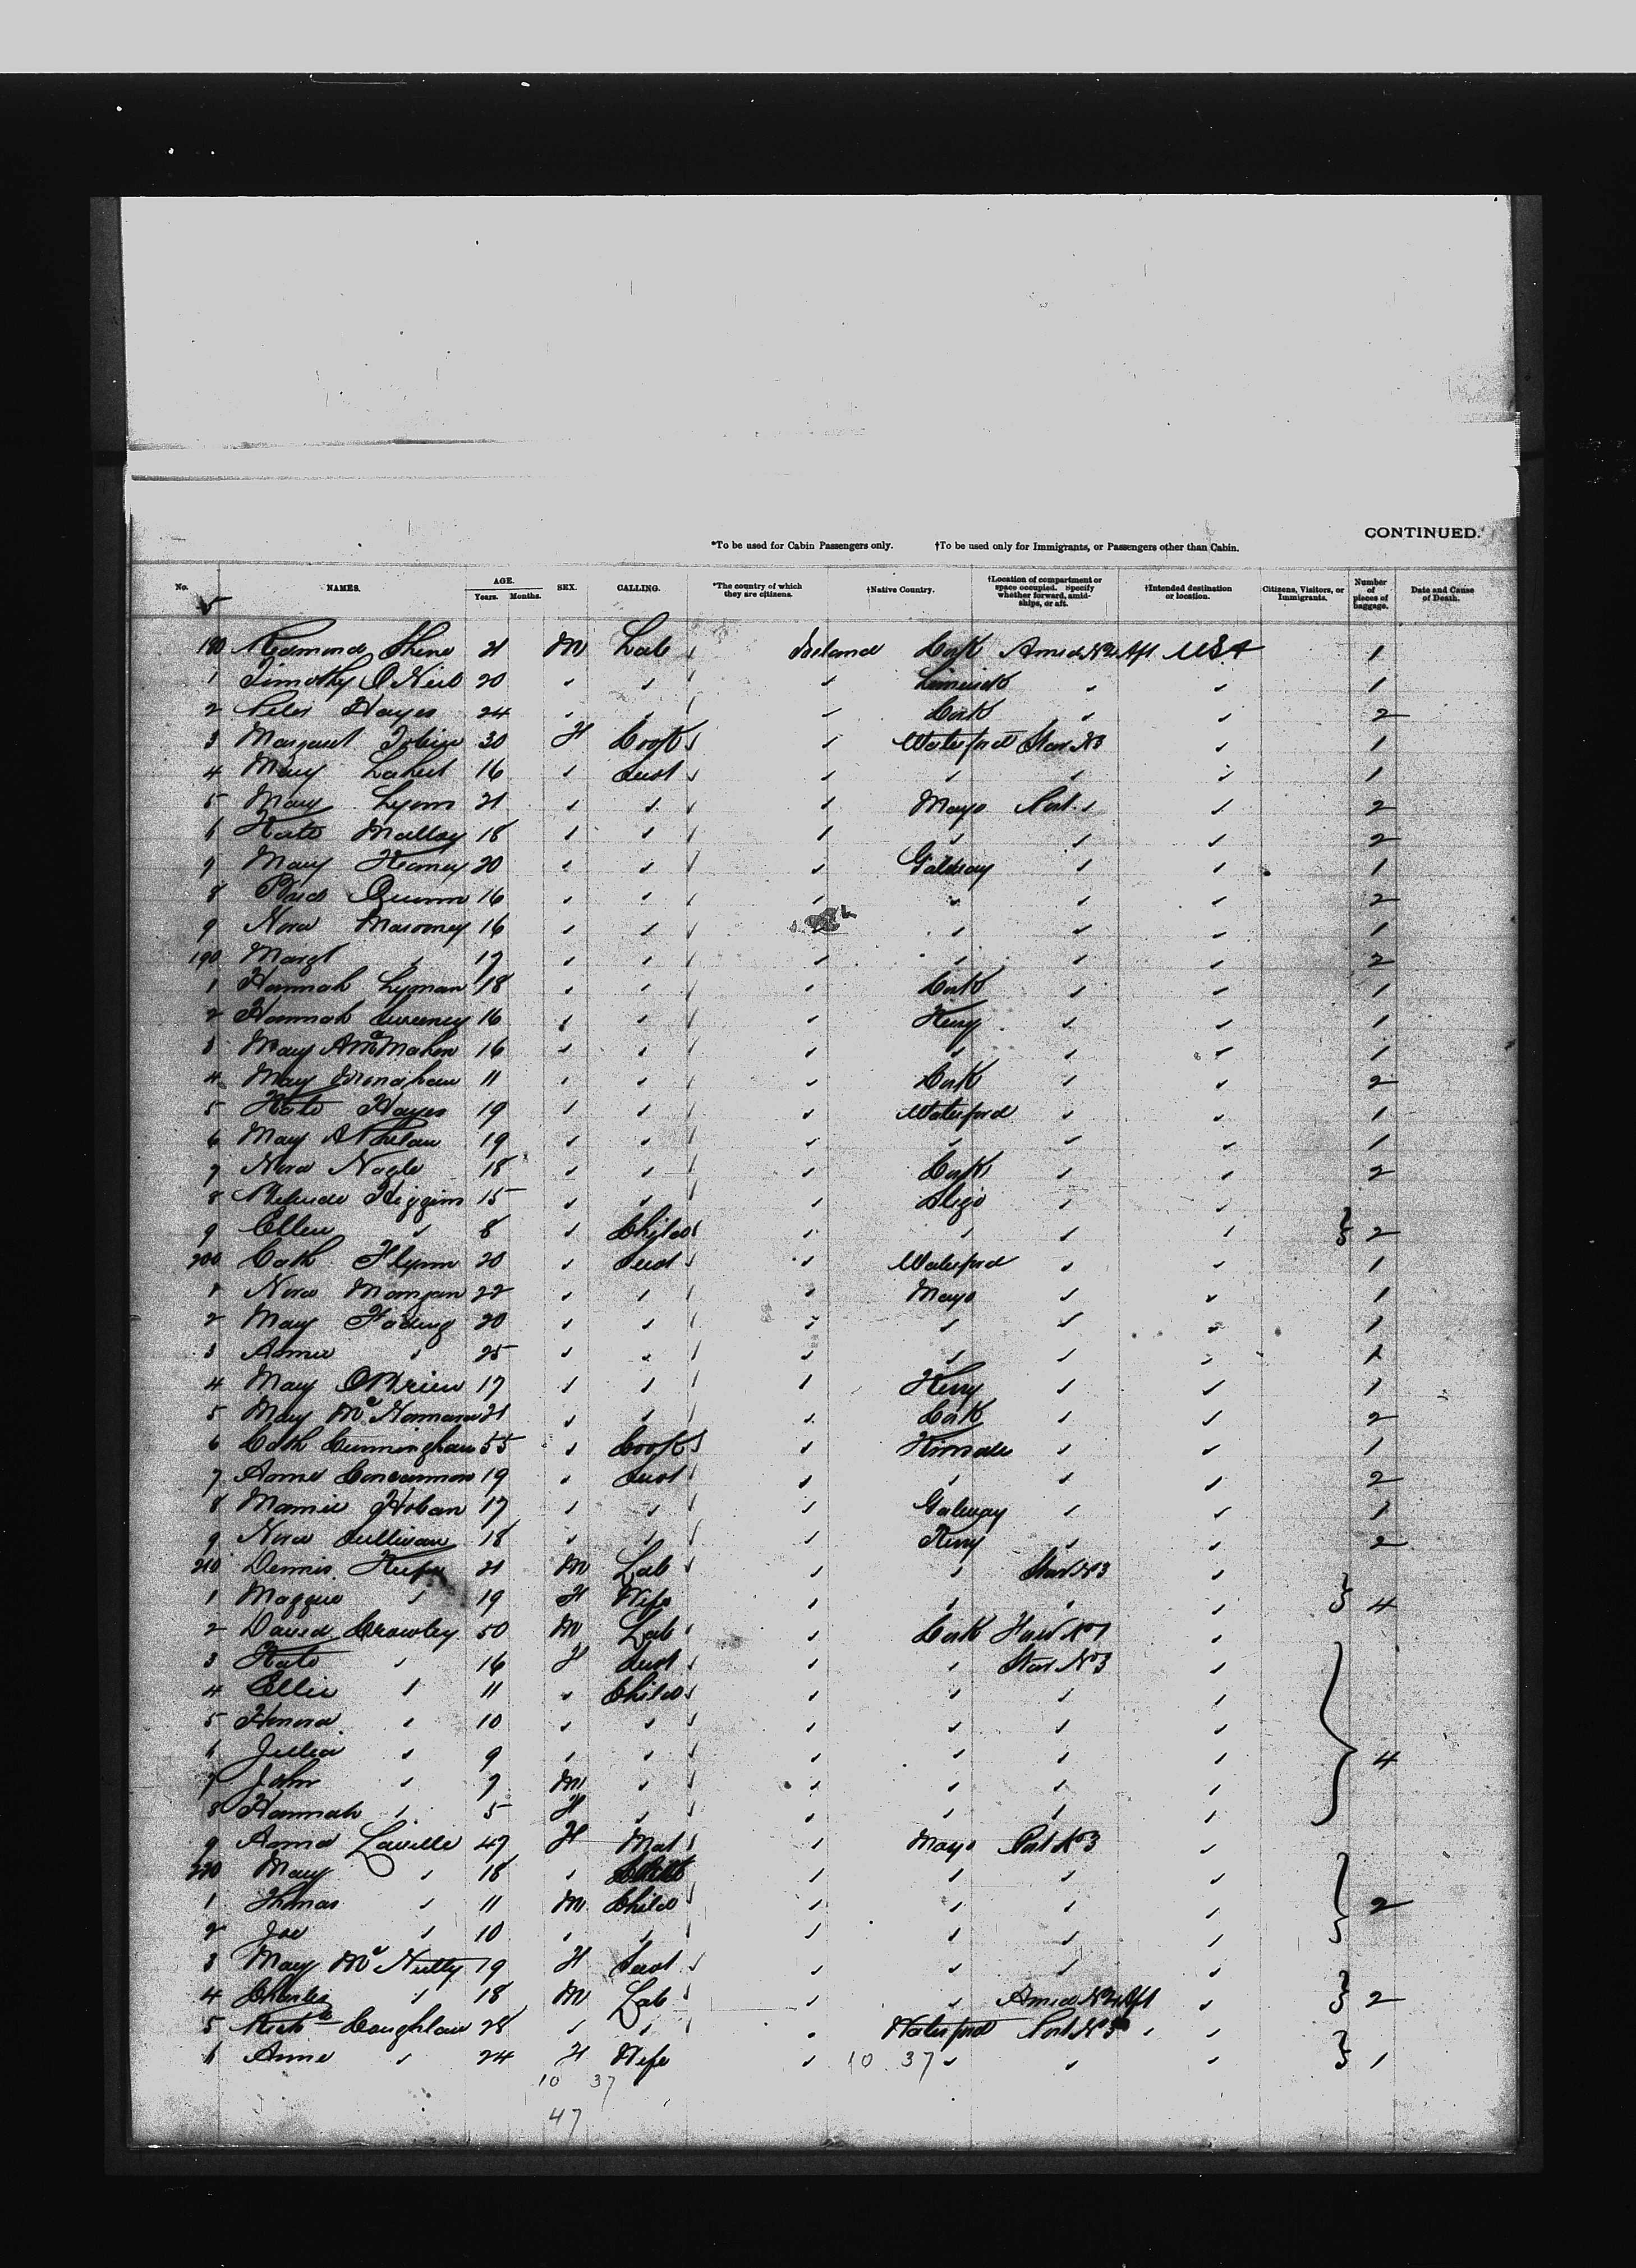 CONTINUED.
*To be used for Cabin Passengers only. †To be used only for Immigrants, or Passengers other than Cabin.
No. NAMES. AGE. Years. Months. SEX. CALLING. *The country of which they are citizens. †Native Country. †Location of compartment or space occupied. Specify whether forward, amidships, or aft. †Intended destination or location. Citizens, Visitors, or Immigrants. Number of pieces of baggage. Date and Cause of Death.
180 Redmond Shine 21 M Lab Ireland Cork Amid No 2 Aft USA 1
1 Timothy O'Neil 20 " " " Limerick " " 1
2 Peter Hayes 24 " " " Cork " " 2
3 Margaret Tobin 30 F Cook " Waterford Star No 3 " 1
4 Mary 16 " Servt " " " " 1
5 Mary Lyons 21 " " " Mayo Port " " 2
6 Kate Malloy 18 " " " " " " 2
7 Mary 20 " " " Galway " " 1
8 Quinn 16 " " " " " " 2
9 Nora Marooney 16 " " " " " " 1
190 Margt " 17 " " " " " " 2
1 Hannah Lyman 18 " " " Cork " " 1
2 Hannah Sweeney 16 " " " Kerry " " 1
3 Mary A McMahon 16 " " " " " " 1
4 Mary 11 " " " Cork " " 2
5 Kate Hayes 19 " " " Waterford " " 1
6 Mary A Phelan 19 " " " " " " 1
7 Nora Nagle 18 " " " Cork " " 2
8 Higgins 15 " " " Sligo " "
9 Ellen " 8 " Child " " " " 2
200 Cath Flynn 20 " Servt " Waterford " " 1
1 Nora Mongan 22 " " " Mayo " " 1
2 Mary 20 " " " " " " 1
3 Annie " 25 " " " " " " 1
4 Mary O'Brien 17 " " " Kerry " " 1
5 Mary McNamara 21 " " " Cork " " 2
6 Cath Cunningham 55 " Cook " Kinsale " " 1
7 Anne Concannon 19 " Servt " " " " 2
8 Mamie Hoban 17 " " " Galway " " 1
9 Nora Sullivan 18 " " " Kerry " " 2
210 Dennis Keefe 21 M Lab " " Star No 3 "
1 Maggie " 19 F Wife " " " " 4
2 David Crowley 50 M Lab " Cork Forw No 1 "
3 Kate " 16 F Servt " " Star No 3 "
4 Ellie " 11 " Child " " " "
5 Honora " 10 " " " " " "
6 Julia " 9 " " " " " " 4
7 John " 7 M " " " " "
8 Hannah " 5 F " " " " "
9 Anna Laville 47 F Mat " Mayo Port No 3 "
220 Mary " 18 " " " " "
1 Thomas " 11 M Child " " " " 2
2 Joe " 10 " " " " " "
3 Mary McNulty 19 F Servt " " " "
4 Charles " 18 M Lab " " Amid No 2 Aft " 2
5 Richd Coughlan 28 " " " Waterford Port No 3 "
6 Anne " 24 F Wife " 10 37 " " " 1
10 37
47